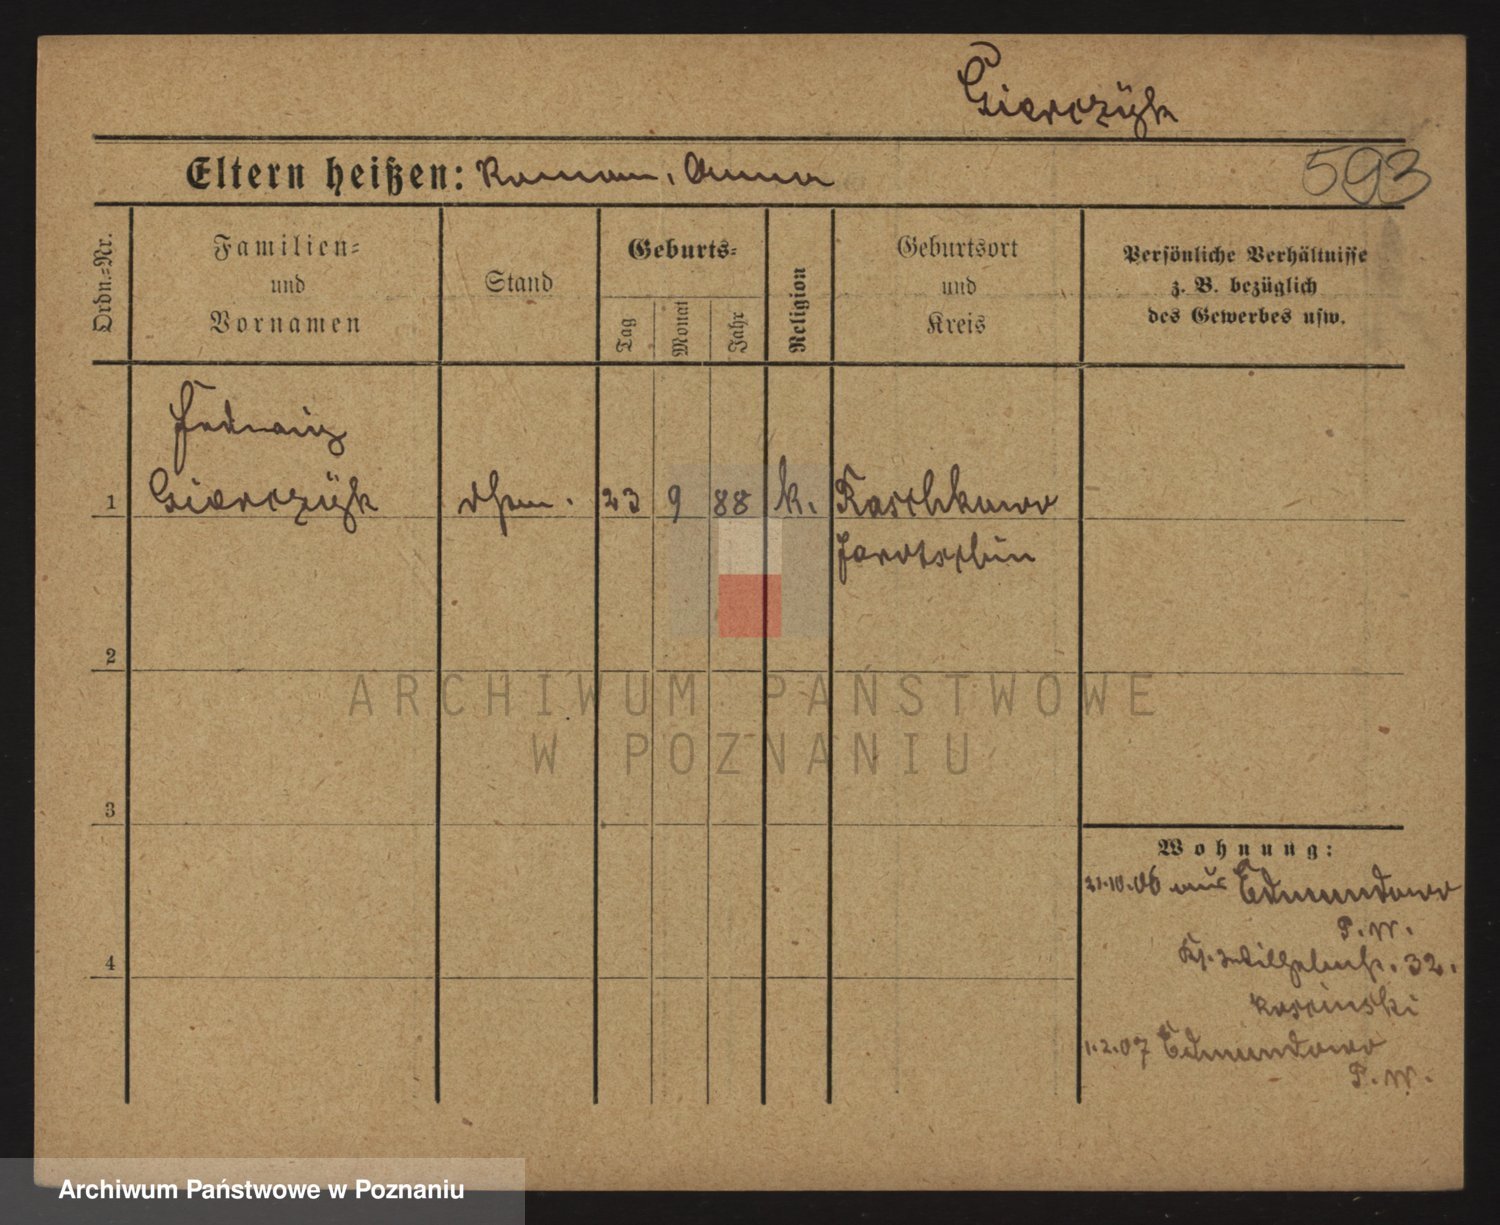 Gierczÿk
593
Eltern heißen: Roman, Anna
Ordn.=Nr.
Familien=
und
Vornamen
Stand
Geburts=
Tag
Monat
Jahr
Religion
Geburtsort
und
Kreis
Persönliche Verhältnisse
z. B. bezüglich
des Gewerbes usw.
Hedwig
1 Gierczÿk 23 9 88 k. Koschkowo
Jarotschin
2
3
4
ARCHIWUM PAŃSTWOWE
W POZNANIU
Wohnung:
21.10.06 aus Edmundowo
P. W.
Wilhelmstr. 32.
Kosinski
1.2.07 Edmundowo
P. W.
Archiwum Państwowe w Poznaniu